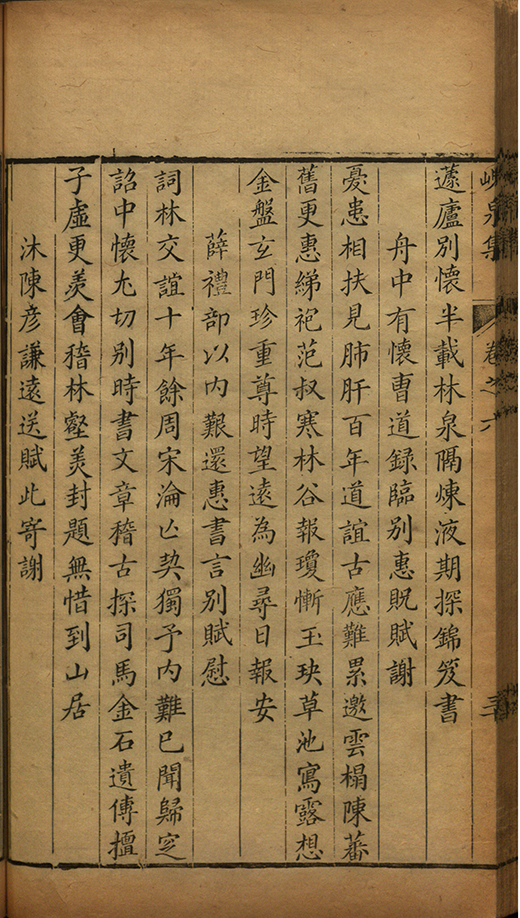 峴泉集 卷之六
蘧廬別懷半載林泉隔煉液期探錦笈書
舟中有懷曹道録臨別惠貺賦謝
憂患相扶見肺肝百年道誼古應難累邀雲榻陳蕃
舊更惠綈袍范叔寒林谷報瓊慚玉玦草池寫露想
金盤玄門珍重尊時望遠為幽尋日報安
薛禮部以內艱還惠書言別賦慰
詞林交誼十年餘周宋淪亾契獨予內難已聞歸窆
詔中懷尤切別時書文章稽古探司馬金石遺傳擅
子虛更羨會稽林壑美封題無惜到山居
沐陳彦謙遠送賦此寄謝